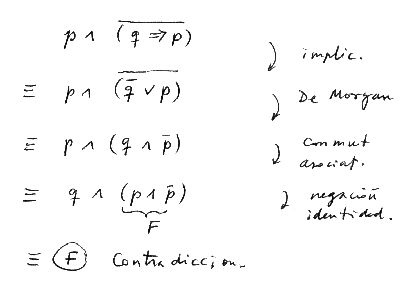 p ∧ (q ⇒ p)‾ implic.
≡ p ∧ (q̄ ∨ p)‾ De Morgan
≡ p ∧ (q ∧ p̄) conmut
asociat.
≡ q ∧ (p ∧ p̄) negación
identidad.
F
≡ F Contradiccion.